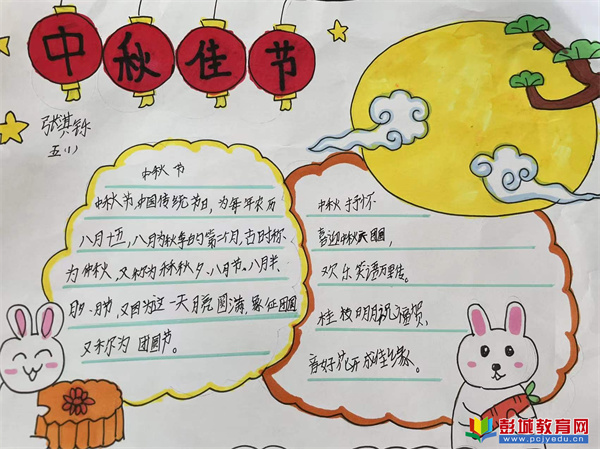 中秋佳节
张淇铄
五(1)
中秋节
中秋节中国传统节日，为每年农历
八月十五，八月为秋季的第二个月，古时称
为仲秋，又称为秋夕、八月节。八月半
月夕、月节，又因为这一天月亮圆满，象征团圆
又称为团圆节。
中秋抒怀
喜迎中秋庆团圆，
欢乐笑语万里传。
桂枝明月祝福贺，
喜好花开成佳缘。
彭城教育网
www.pcjyedu.cn